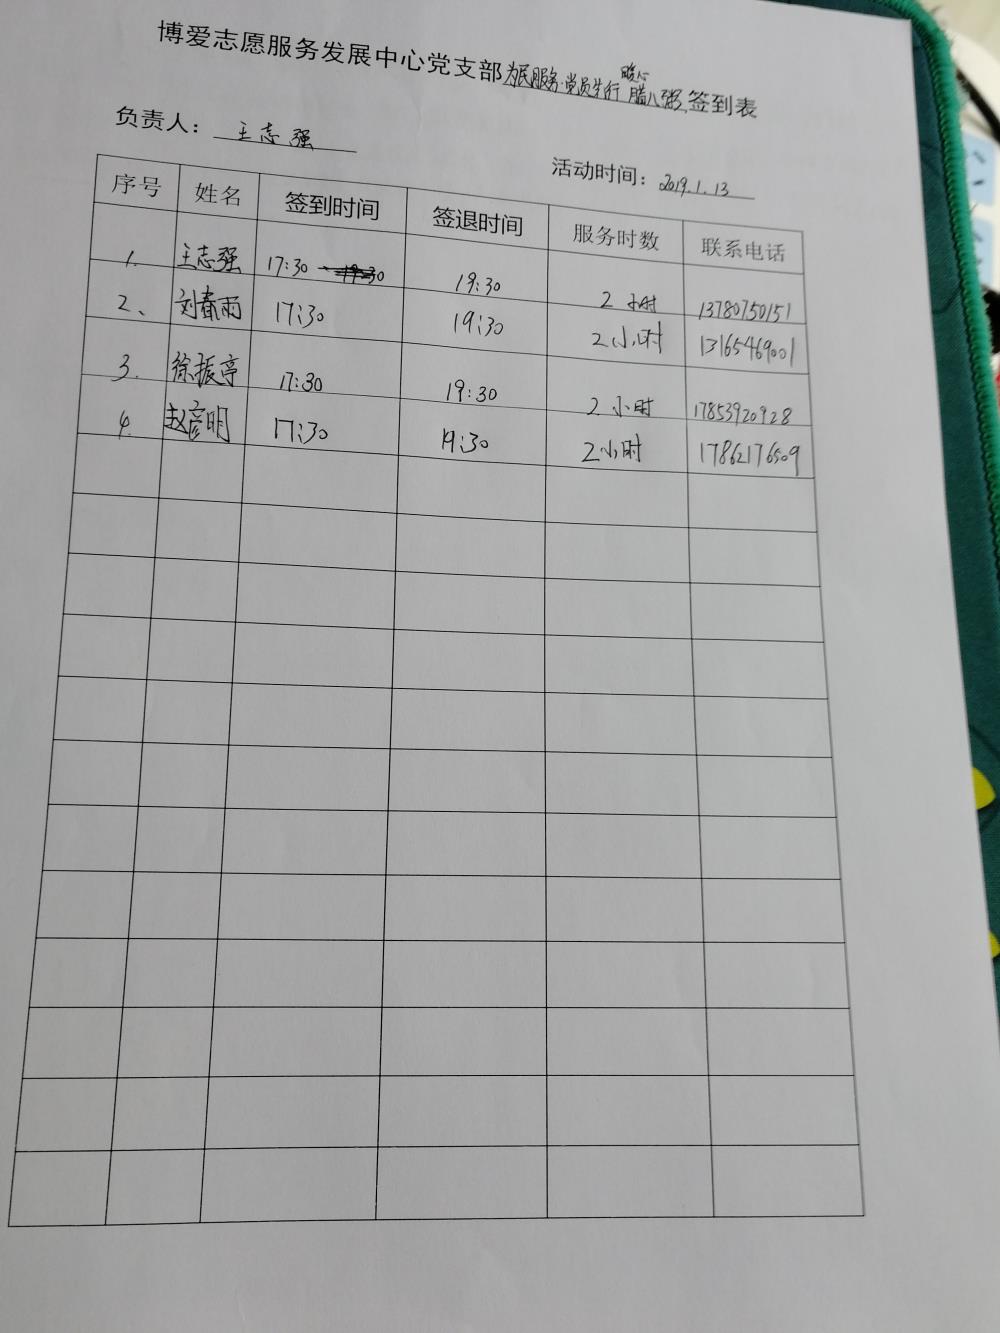 博爱志愿服务发展中心党支部为民服务·党员先行 暖心腊八粥签到表
负责人：王志强
活动时间：2019.1.13
序号 姓名 签到时间 签退时间 服务时数 联系电话
1. 王志强 17:30 19:30 2小时 13780750151
2、 刘春雨 17:30 19:30 2小时 13165469001
3. 徐振亭 17:30 19:30 2小时 17853920928
4. 赵彦明 17:30 19:30 2小时 17862176509